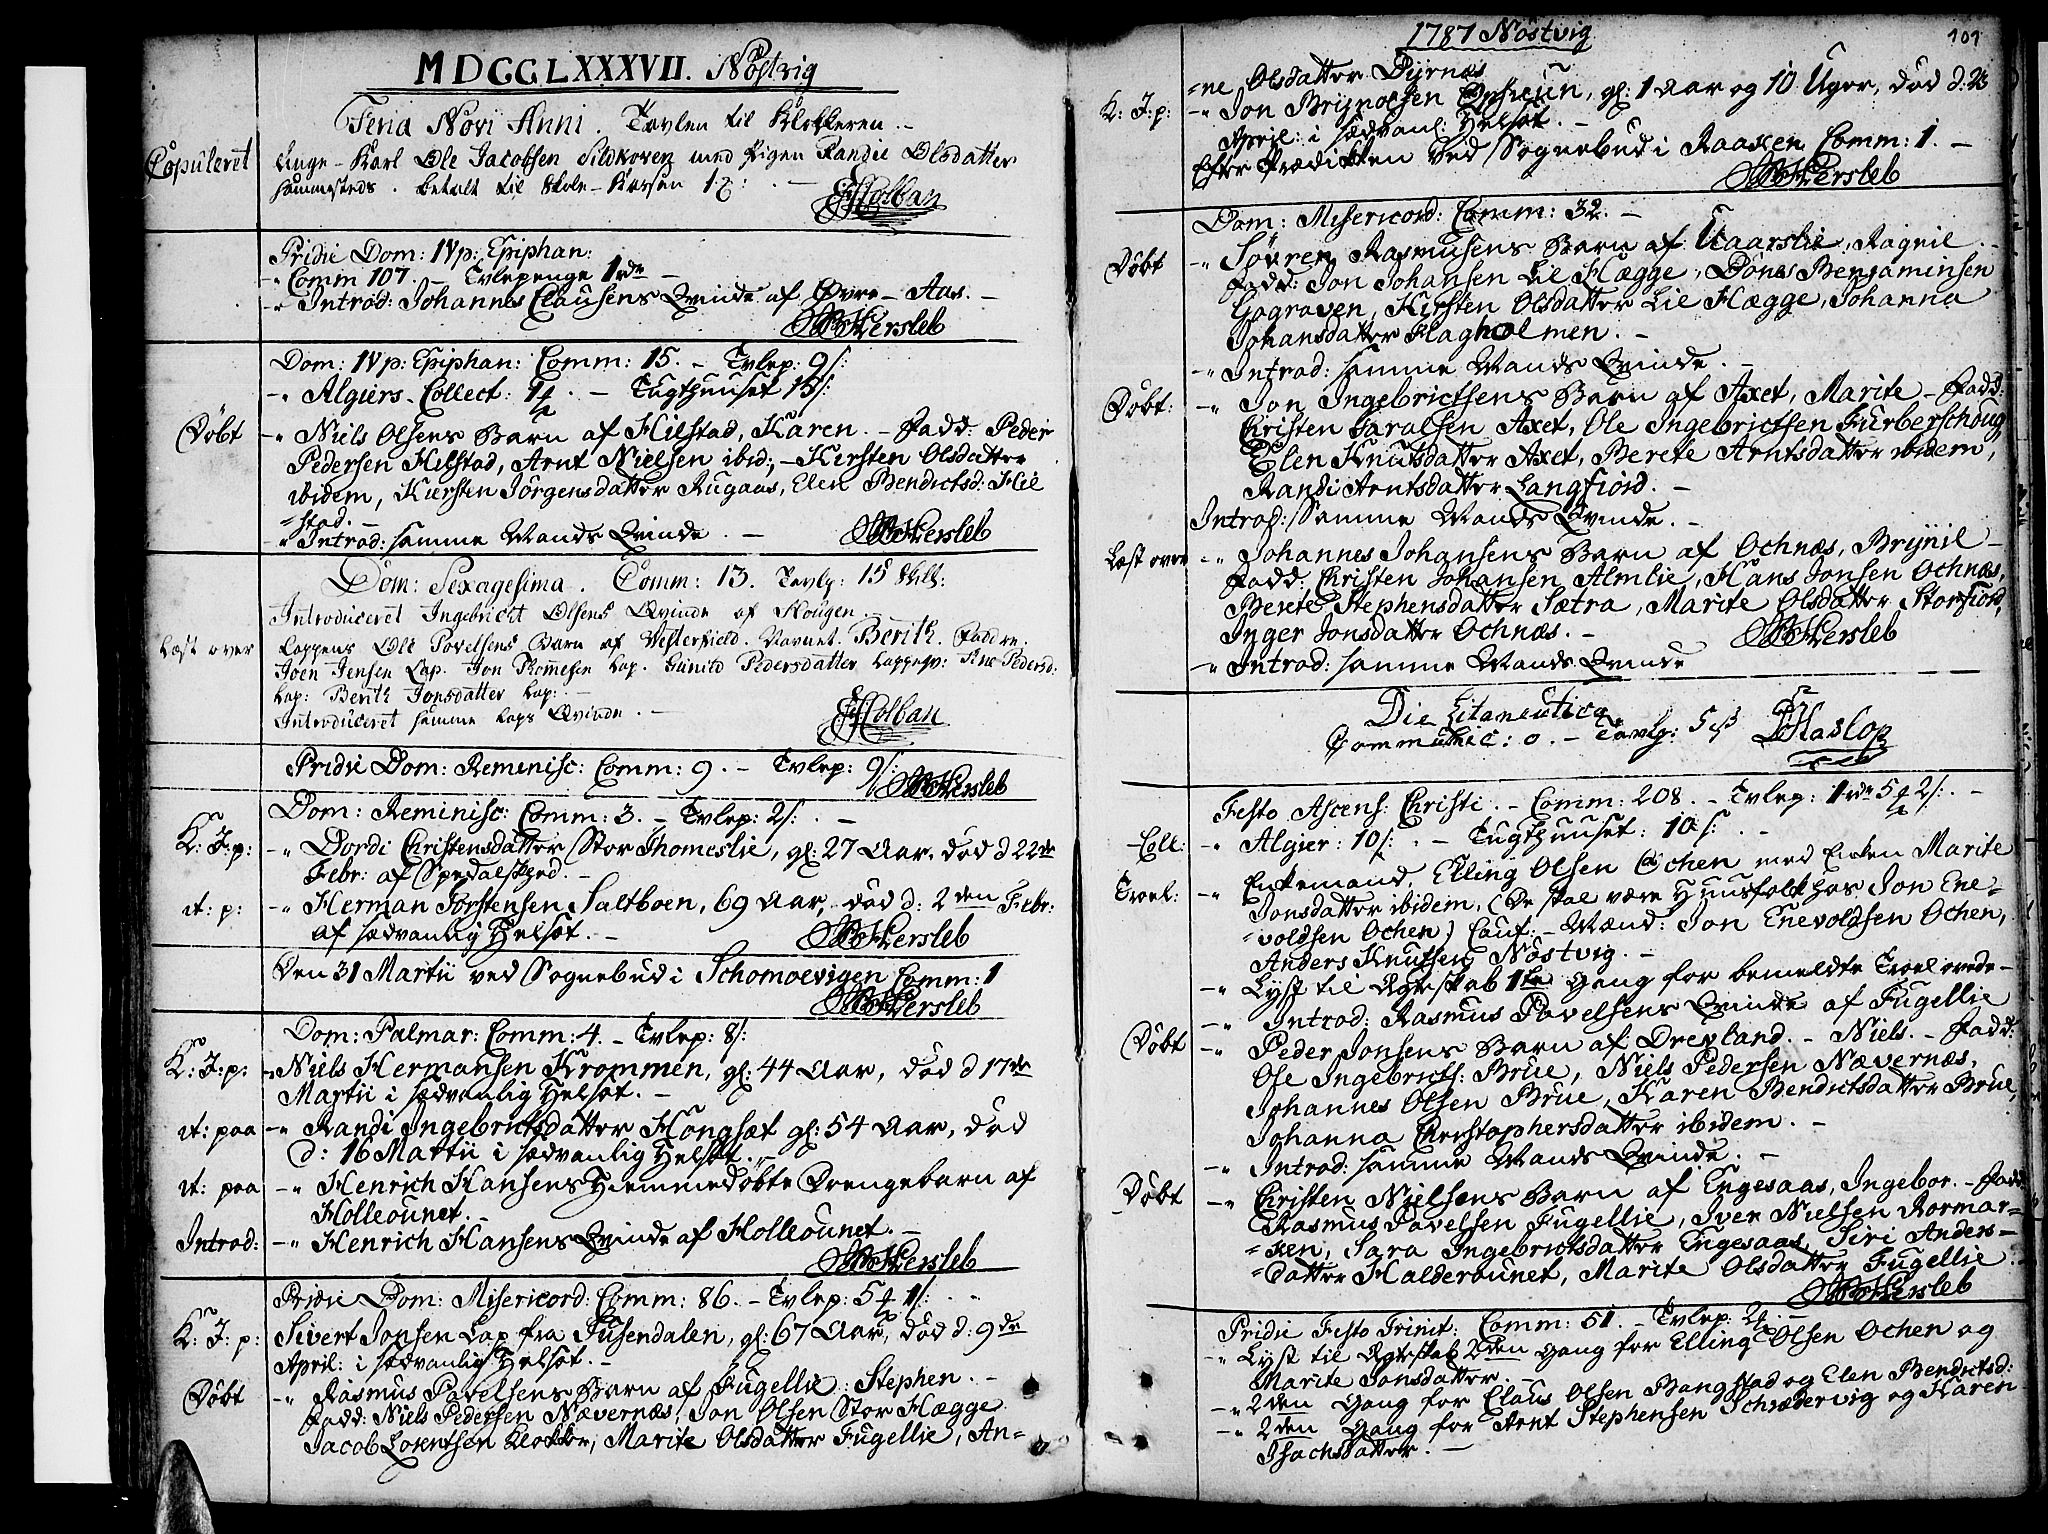 MDCCLXXXVII. Nöstvig
Feria Novi Anni. Tavlen til Klokkeren.
Copuleret Unge-Karl Ole Jacobsen Sildhoven med Pigen Randie Olsdatter
Hammesteds. betalt til Skole-Kassen
Holban
Pridie Dom: IV p: Epiphan:
-" Comm 107. - Tvlepenge 1 rdr -
-" Introd: Johannes Clausens Qvinde af Øvre-Aas. -
Hersleb
Dom: IV p: Epiphan: Comm: 15. - Tvlep: 9/:
-" Algiers-Collect: - Tugthuuset 15/:
Döbt -" Niels Olsens Barn af Hilstad, Karen. - Fadd: Peder
Pedersen Hilstad, Arnt Nielsen ibid:, - Kirsten Olsdatter
ibidem, Kiersten Jörgensdatter Rugaas, Elen Bendictsd: Hil
=stad. -
-" Introd: samme Mands Qvinde. -
Hersleb
Dom: Sexagesima. Comm: 13. Tavlp: 15 Skill:
Introduceret Ingebricht Olsens Qvinde af Hougen. -
Læst over Lappens Ole Povelsens Barn af Vesterfield. Navnet. Berith. Faddre.
Joen Jensen Lap. Jon Thomesen Lap. Gunild Pedersdatter Lappeqv: Pedersd:
Lap: Berith Jonsdatter Lap: -
Introduceret samme Laps Qvinde. -
Holban
Pridie Dom: Reminisc: Comm: 9. - Tvlep: 9/:
Hersleb
Dom: Reminisc: Comm: 3. - Tvlep: 2/: . -
K: J: p: -" Dordi Christensdatter Stor Thomeslie, gl: 27 Aar, död d 22de
Febr: af Spedalskhed. -
it: p: -" Herman Torstensen Saltboen, 69 Aar, död d: 2den Febr:
af sædvanlig Helsot. -
Hersleb
Den 31 Martii ved Sognebud i Schomoevigen Comm: 1
Hersleb
Dom: Palmar: Comm: 4 - Tvlep: 8/:
K: J: p: -" Niels Hermansen Krommen, gl: 44 Aar, död d 17de
Martii i sædvanlig Helsot. -
it: paa -" Randi Ingebrictsdatter Hongsæt gl: 54 Aar, död
d: 16 Martii i sædvanlig Helsot. -
it: paa -" Henrich Hansens Hiemmedöbte Drengebarn af
Holleounet. -
Introd: -" Henrich Hansens Qvinde af Holleounet. -
Hersleb
Pridie Dom: Misericord: Comm: 86. - Tvlep: 5 1/:
K: J: p: Sivert Jonsen Lap fra Fusendalen, gl: 67 Aar, död d: 9de
April: i sædvanlig Helsot. -
Döbt -" Rasmus Pavelsens Barn af Fugellie: Stephen. -
Fadd: Niels Pedersen Nævernæs, Jon Olsen Stor Hægge
Jacob Lorentsen Klokker, Marite Olsdatter Fugellie, An=
1787 Nöstvig
101
=ne Olsdatter Dyrnæs
K: J: p: -" Jon Brynolsen, gl: 1 Aar og 10 Uger, död d: 2de
April: i sædvanl: Helsot. -
Efter Prædikken ved Sognebud i Raaxen Comm: 1. -
Hersleb
Dom: Misericord: Comm: 32. -
Döbt -" Sövren Rasmusens Barn af Uaarslie, Ragnil. -
Fadd: Jon Johansen Lil Hægge, Dönes Benjaminsen
Gograven, Kirsten Olsdatter Lie Hægge, Johanna
Johansdatter Hagholmen. -
-" Introd: samme Mands Qvinde. -
Döbt: -" Jon Ingebrictsens Barn af Axet, Marite - Fadd:
Christen Haralsen Axet, Ole Ingebrictsen Furberschoug
Elen Knutsdatter Axet, Berete Arntsdatter ibidem,
Randi Arntsdatter Langfiord. -
Introd: Samme Mands Qvinde. -
Læst over -" Johannes Johansens Barn af Ochnæs, Brynil -
Fadd. Christen Johansen Almlie, Hans Jonsen Ochnæs,
Berete Stephensdatter Sætra, Marite Olsdatter Storfiord,
Inger Jonsdatter Ochnæs. -
Hersleb
-" Introd: samme Mands Qvinde
Die Litaneutica
Communic: 0. - Tavlp: 5 ß
Haslop
Festo Ascens: Christi. - Comm: 208. - Tvlep: 1 rdr 5 2/: . -
Coll: -" Algier: 10/: . - Tugthuuset: 10/: . -
Troel: -" Enkemand, Elling Olsen Ochen med Enken Marite
Jonsdatter ibidem, (De skal være Huusfolk hos Jon Ene=
=voldsen Ochen) Cauf: - Mænd: Jon Enevoldsen Ochen,
Anders Knutsen Nöstvig. -
-" Lyst til Ægteskab 1ste Gang for bemeldte Troelovede -
-" Introd: Rasmus Pavelsens Qvinde af Fugellie
Döbt -" Peder Jonsens Barn af Drevland. - Niels. - Fadd:
Ole Ingebricts: Brue, Niels Pedersen Nævernæs,
Johannes Olsen Brue, Karen Bendictsdatter Brue,
Johanna Christophersdatter ibidem. -
-" Introd: samme Mands Qvinde. -
Döbt -" Christen Nielsens Barn af Engesaas, Ingebor. - Fadd
Rasmus Pavelsen Fugellie, Iver Nielsen Rormar=
=ken, Sara Ingebrictsdatter Engesaas, Siri Anders=
=datter Halderounet, Marite Olsdatter Fugellie. -
Hersleb
Pridie Festo Trinit: Comm: 51. - Tvlep: -
-" Lyst til Ægteskab 2den Gang for Elling Olsen Ochen og
Marite Jonsdatter. -
-" 2den Gang for Claus Olsen Bangstad og Elen Bendictsd:
-" 2den Gang for Arnt Stephensen Schrædervig og Karen
Isachsdatter. -